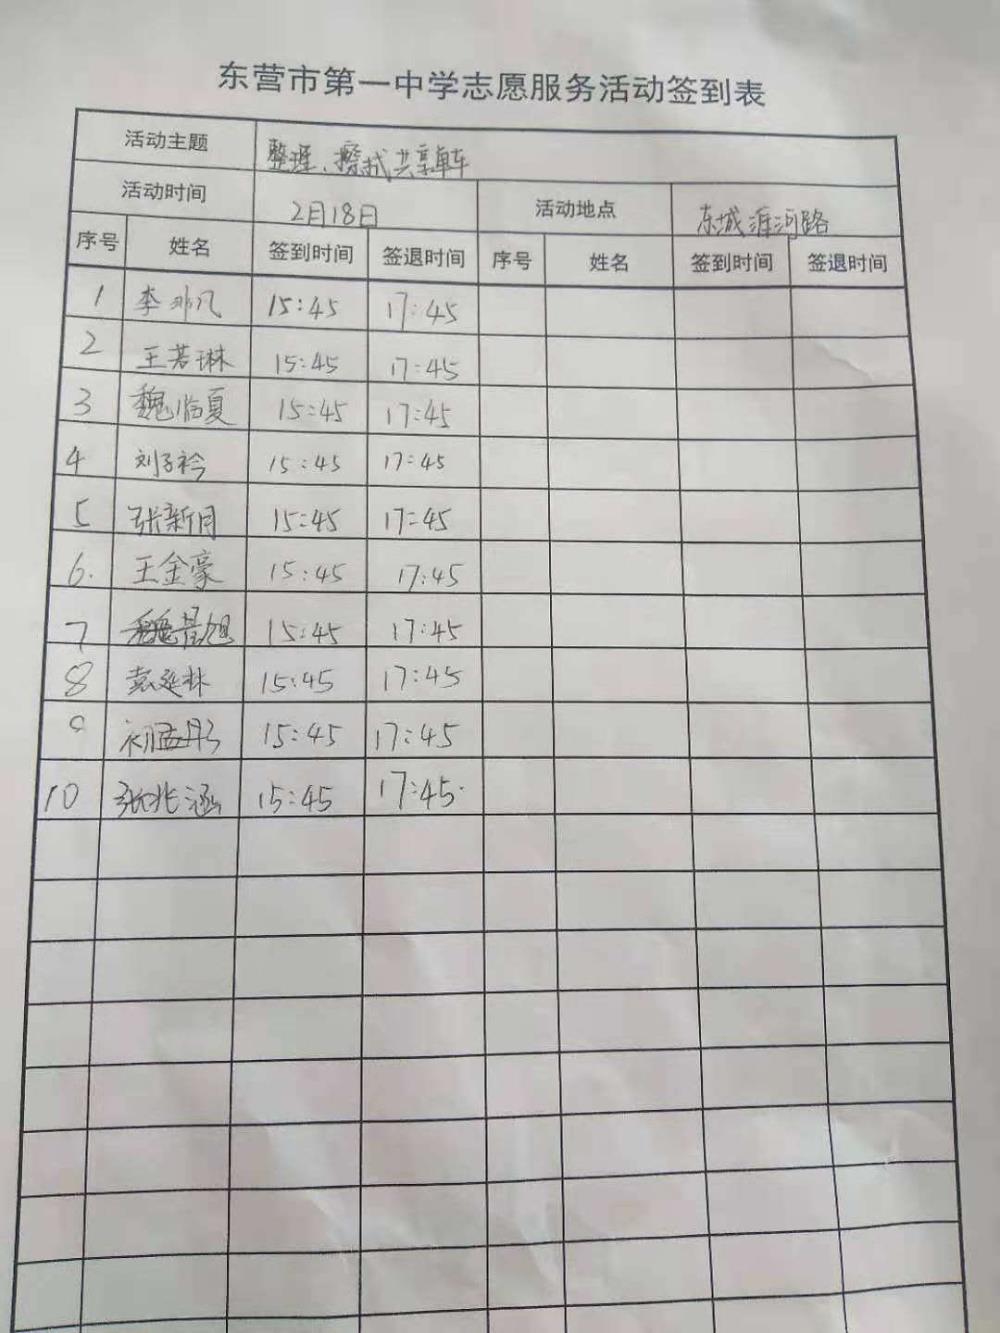 东营市第一中学志愿服务活动签到表
活动主题 整理、擦拭共享单车
活动时间 2月18日 活动地点 东城淮河路
序号 姓名 签到时间 签退时间 序号 姓名 签到时间 签退时间
1 李非凡 15:45 17:45
2 王若琳 15:45 17:45
3 魏临夏 15:45 17:45
4 刘子衿 15:45 17:45
5 张新月 15:45 17:45
6. 王金豪 15:45 17:45
7 15:45 17:45
8 袁延林 15:45 17:45
9 15:45 17:45
10 张兆涵 15:45 17:45.